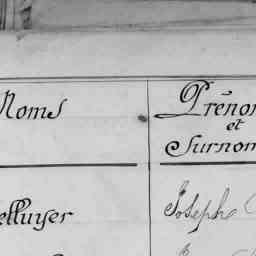 Noms
Prénom
et
Surnom
elluyer
Joseph